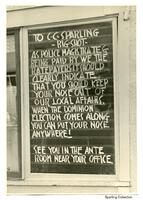 TO C.G. SPARLING
- BIG SHOT -
AS POLICE MAGISTRATE &
BEING PAID BY WE THE
RATEPAYERS IT SHOULD
CLEARLY INDICATE
THAT YOU SHOULD KEEP
YOUR NOSE OUT OF
OUR LOCAL AFFAIRS.
WHEN THE DOMINION
ELECTION COMES ALONG
YOU CAN PUT YOUR NOSE
ANYWHERE!
SEE YOU IN THE ANTE
ROOM NEAR YOUR OFFICE.
Sparling Collection